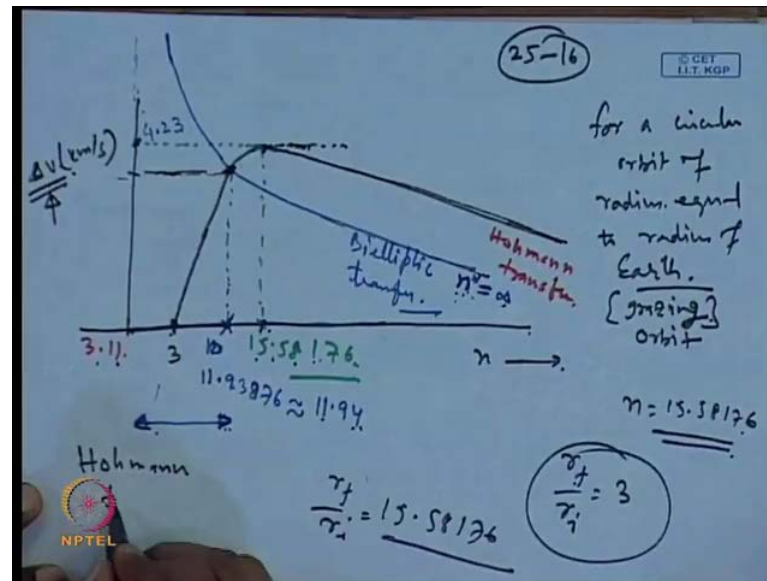 25-16
© CET
I.I.T. KGP
4.23
Δv (km/s)
for a circular
orbit of
radius equal
to radius of
Earth.
[grazing]
orbit
Bielliptic
transfer.
n* = ∞
Hohmann
transfer.
3.11.
3
10
15.58176
n →
11.93876 ≈ 11.94
n = 15.58176
Hohmann
r_f/r_i = 15.58176
r_f/r_i = 3
NPTEL